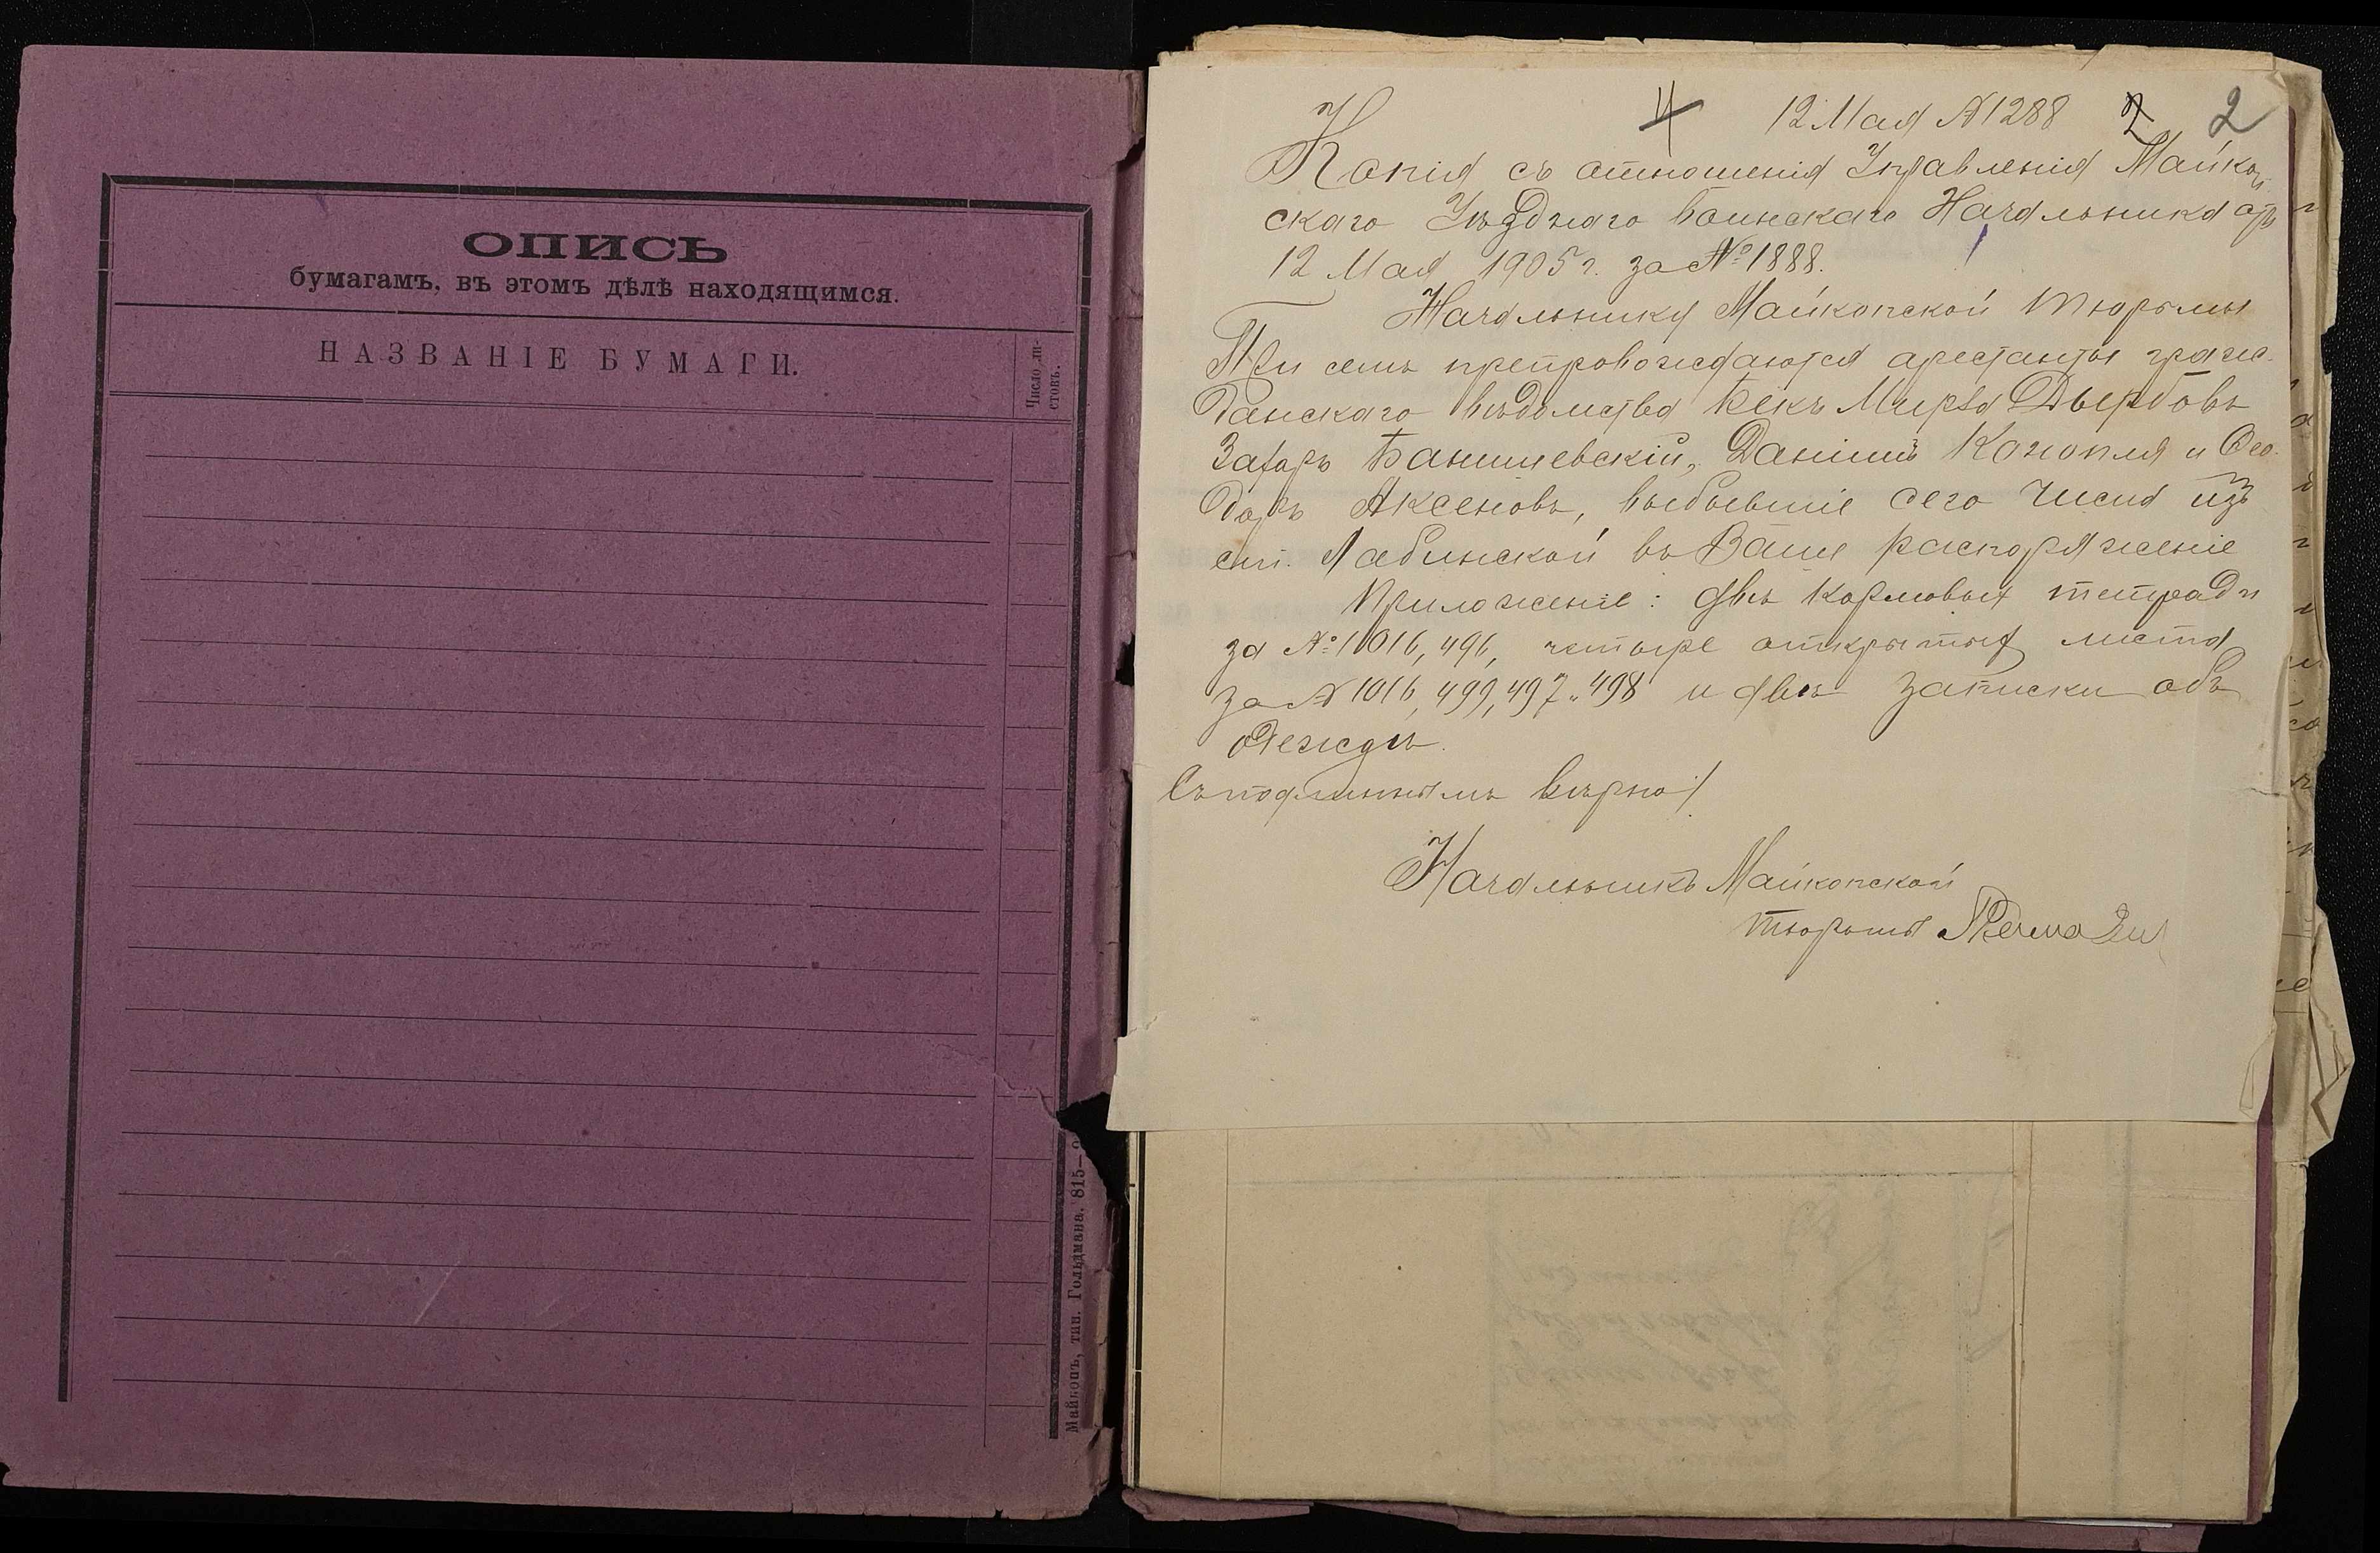 ОПИСЬ
бумагамъ, въ этомъ дѣлѣ находящимся.
НАЗВАНІЕ БУМАГИ.
Число ли-
стовъ.
Майкопъ, тип. Гольдмана. 815—
12 Мая № 1288 2 2
Копія съ отношенія Управленія Майкоп
скаго Уѣзднаго Воинскаго Начальника отъ
12 Мая 1905 г. за № 1888.
Начальнику Майкопской тюрьмы
При семъ препровождаются арестанты граж-
данскаго вѣдомства Бекъ Мирза Дьербовъ
Захаръ Банишевскій, Даніилъ Конопля и Ѳео-
доръ Аксеновъ, выбывшіе сего числа изъ
ст. Лабинской въ Ваше распоряженіе
Приложеніе: двѣ кормовыя тетради
за №: 1016, 496, четыре открытыхъ листа
за № 1016, 499, 497 и 498 и двѣ записки объ
одеждѣ.
Съ подлиннымъ вѣрно:
Начальникъ Майкопской
тюрьмы